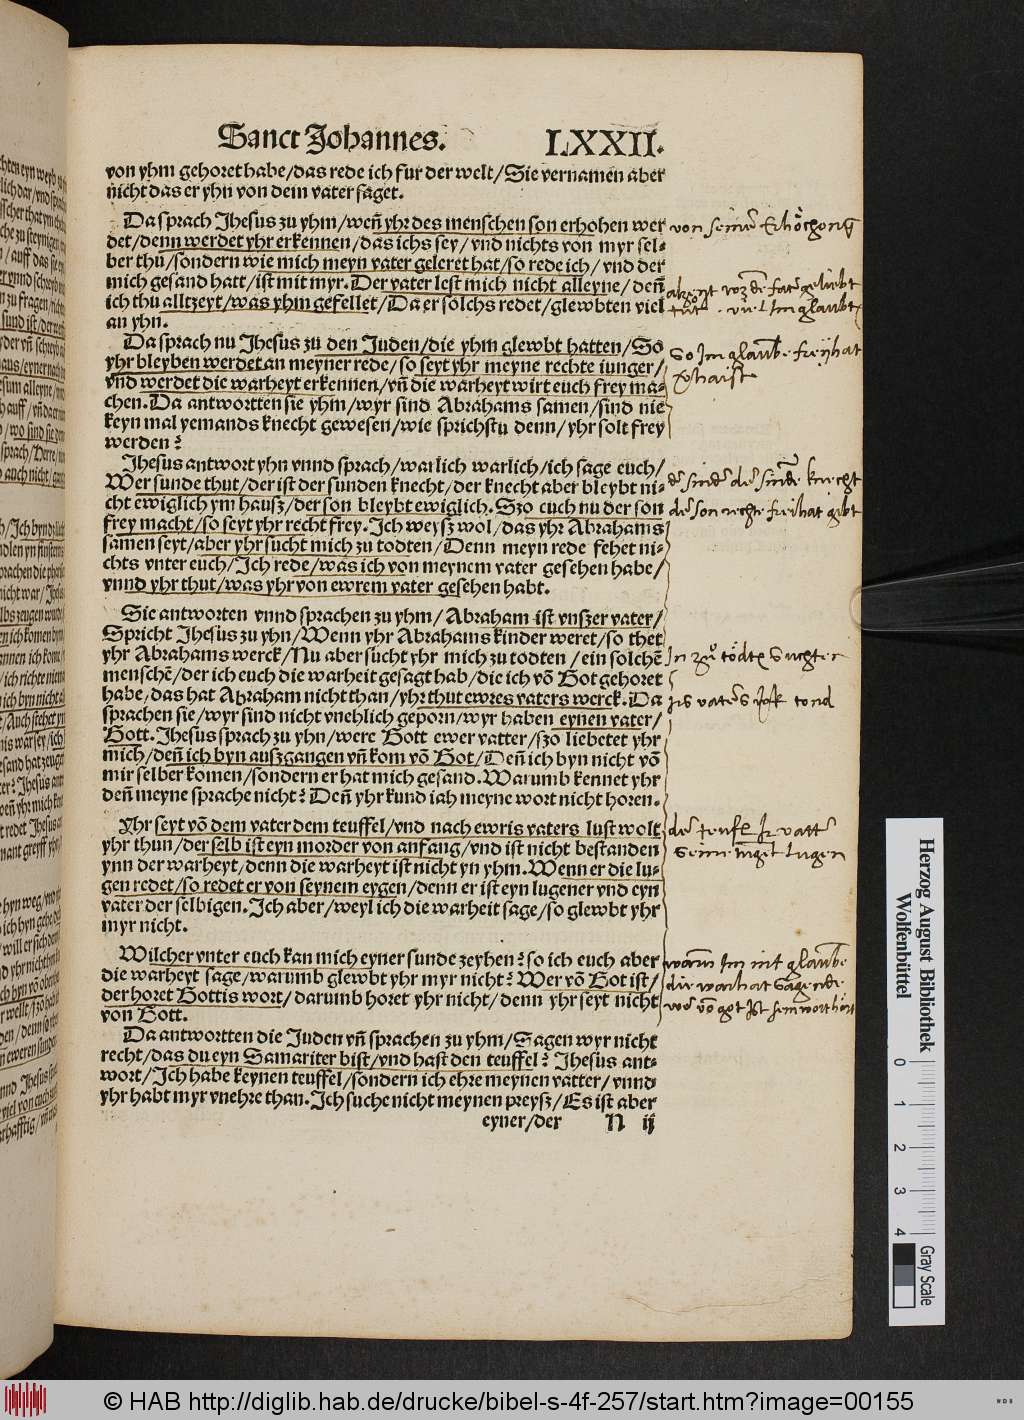 Sanct Johannes. LXXII.
von yhm gehoret habe/das rede ich fur der welt/Sie vernamen aber
nicht das er yhn von dem vater saget.
Da sprach Jhesus zu yhm/weñ yhr des menschen son erhohen wer
det/denn werdet yhr erkennen/das ichs sey/vnd nichts von myr sel-
ber thu/sondern wie mich meyn vater geleret hat/so rede ich/vnd der
mich gesand hatt/ist mit myr. Der vater lest mich nicht alleyne/deñ
ich thu alltzeyt/was yhm gefellet/Da er solchs redet/glewbten viel
an yhn.
Da sprach nu Jhesus zu den Juden/die yhm glewbt hatten/So
yhr bleyben werdet an meyner rede/so seyt yhr meyne rechte iunger/
vnd werdet die warheyt erkennen/vñ die warheyt wirt euch frey ma-
chen. Da antwortten sie yhm/wyr sind Abrahams samen/sind nie
keyn mal yemands knecht gewesen/wie sprichstu denn/yhr solt frey
werden?
Jhesus antwort yhn vnnd sprach/warlich warlich/ich sage euch/
Wer sunde thut/der ist der sunden knecht/der knecht aber bleybt ni-
cht ewiglich ym hausz/der son bleybt ewiglich. Szo euch nu der son
frey macht/so seyt yhr recht frey. Ich weysz wol/das yhr Abrahams
samen seyt/aber yhr sucht mich zu todten/Denn meyn rede fehet ni-
chts vnter euch/Ich rede/was ich von meynem vater gesehen habe/
vnnd yhr thut/was yhr von ewrem vater gesehen habt.
Sie antworten vnnd sprachen zu yhm/Abraham ist vnszer vater/
Spricht Jhesus zu yhn/Wenn yhr Abrahams kinder weret/so thet
yhr Abrahams werck/Nu aber sucht yhr mich zu todten/ein solchẽ
menschẽ/der ich euch die warheit gesagt hab/die ich võ Got gehoret
habe/das hat Abraham nicht than/yhr thut ewres vaters werck. Da
sprachen sie/wyr sind nicht vnehlich geporn/wyr haben eynen vater/
Gott. Jhesus sprach zu yhn/were Gott ewer vatter/szo liebetet yhr
mich/deñ ich byn auszgangen vñ kom võ Got/Deñ ich byn nicht võ
mir selber komen/sondern er hat mich gesand. Warumb kennet yhr
deñ meyne sprache nicht? Deñ yhr kund iah meyne wort nicht horen.
Yhr seyt võ dem vater dem teuffel/vnd nach ewris vaters lust wolt
yhr thun/der selb ist eyn morder von anfang/vnd ist nicht bestanden
ynn der warheyt/denn die warheyt ist nicht yn yhm. Wenn er die lu-
gen redet/so redet er von seynem eygen/denn er ist eyn lugener vnd eyn
vater der selbigen. Ich aber/weyl ich die warheit sage/so glewbt yhr
myr nicht.
Wilcher vnter euch kan mich eyner sunde zeyhen? so ich euch aber
die warheyt sage/warumb glewbt yhr myr nicht? Wer võ Got ist/
der horet Gottis wort/darumb horet yhr nicht/denn yhr seyt nicht
von Gott.
Da antwortten die Juden vñ sprachen zu yhm/Sagen wyr nicht
recht/das du eyn Samariter bist/vnd hast den teuffel? Jhesus ant-
wort/Ich habe keynen teuffel/sondern ich ehre meynen vatter/vnnd
yhr habt myr vnehre than. Ich suche nicht meynen preysz/Es ist aber
eyner/der N ij
von seiner Erhöchong
So Im glaubẽ freyhat
der sinder der sinde knecht
der son rechte freihat gibt
In zu tödtẽ suchten
der teufl Ir vatter
seine lugen
warum Im nit glaubẽ
die warhat sagende
wer võ got ist sein wort hört
Herzog August Bibliothek
Wolfenbüttel
0 1 2 3 4
Gray Scale
© HAB http://diglib.hab.de/drucke/bibel-s-4f-257/start.htm?image=00155